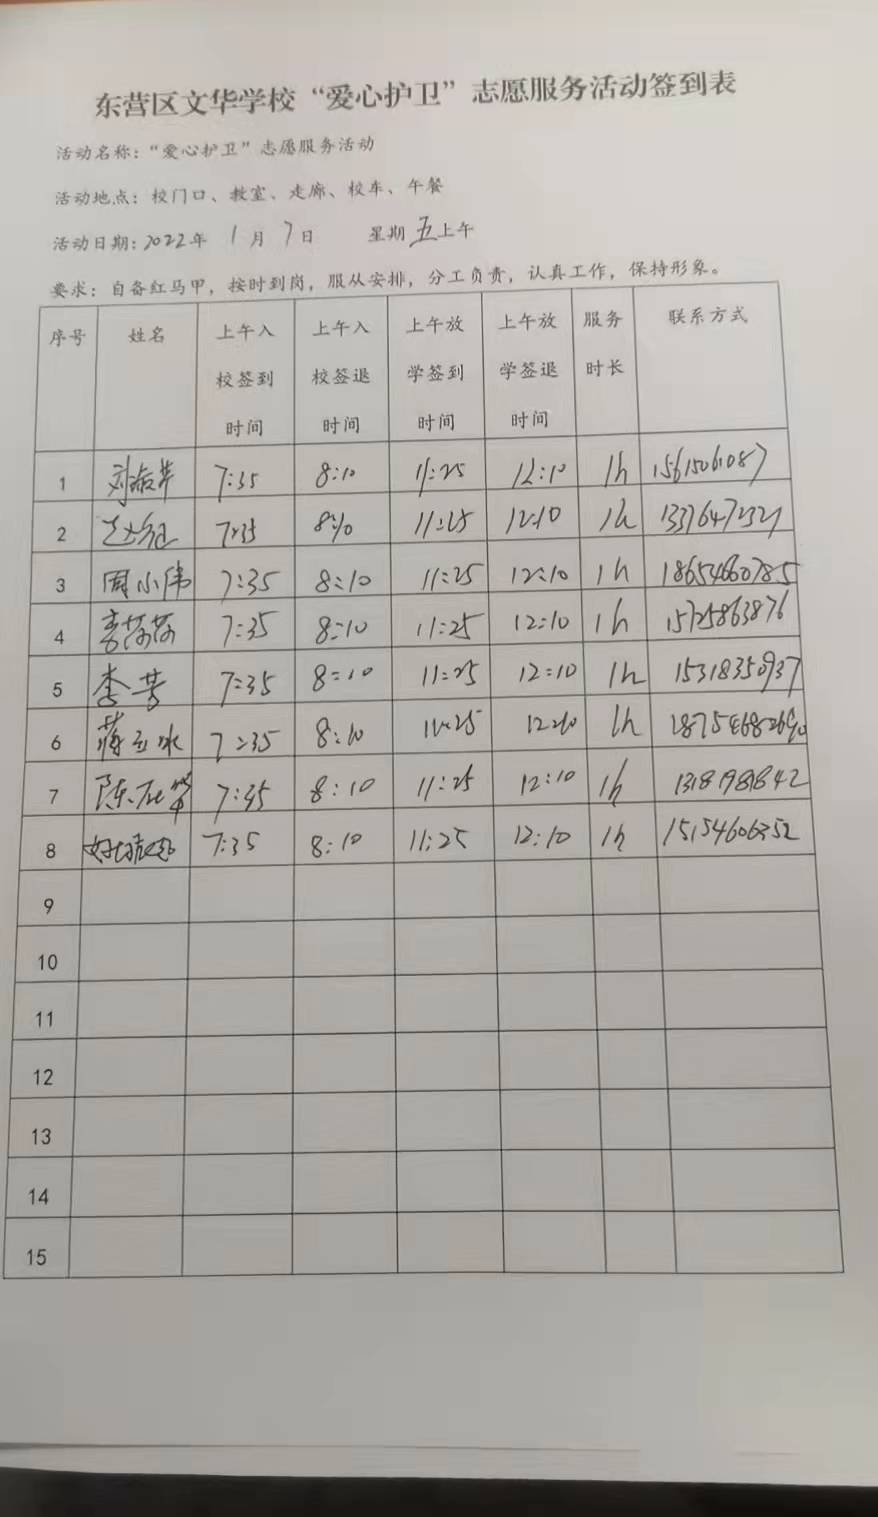 东营区文华学校“爱心护卫”志愿服务活动签到表
活动名称：“爱心护卫”志愿服务活动
活动地点：校门口、教室、走廊、校车、午餐
活动日期：2022年 1月 7日 星期五上午
要求：自备红马甲，按时到岗，服从安排，分工负责，认真工作，保持形象。
序号 姓名 上午入校签到时间 上午入校签退时间 上午放学签到时间 上午放学签退时间 服务时长 联系方式
1 7:35 8:10 11:25 12:10 1h 15615061087
2 7:35 8:10 11:25 12:10 1h
3 周小伟 7:35 8:10 11:25 12:10 1h 18654660785
4 李莎莎 7:35 8:10 11:25 12:10 1h 15725863876
5 李芳 7:35 8:10 11:25 12:10 1h 15318350937
6 蒋玉冰 7:35 8:10 11:25 12:10 1h
7 7:35 8:10 11:25 12:10 1h
8 7:35 8:10 11:25 12:10 1h 15154606352
9
10
11
12
13
14
15